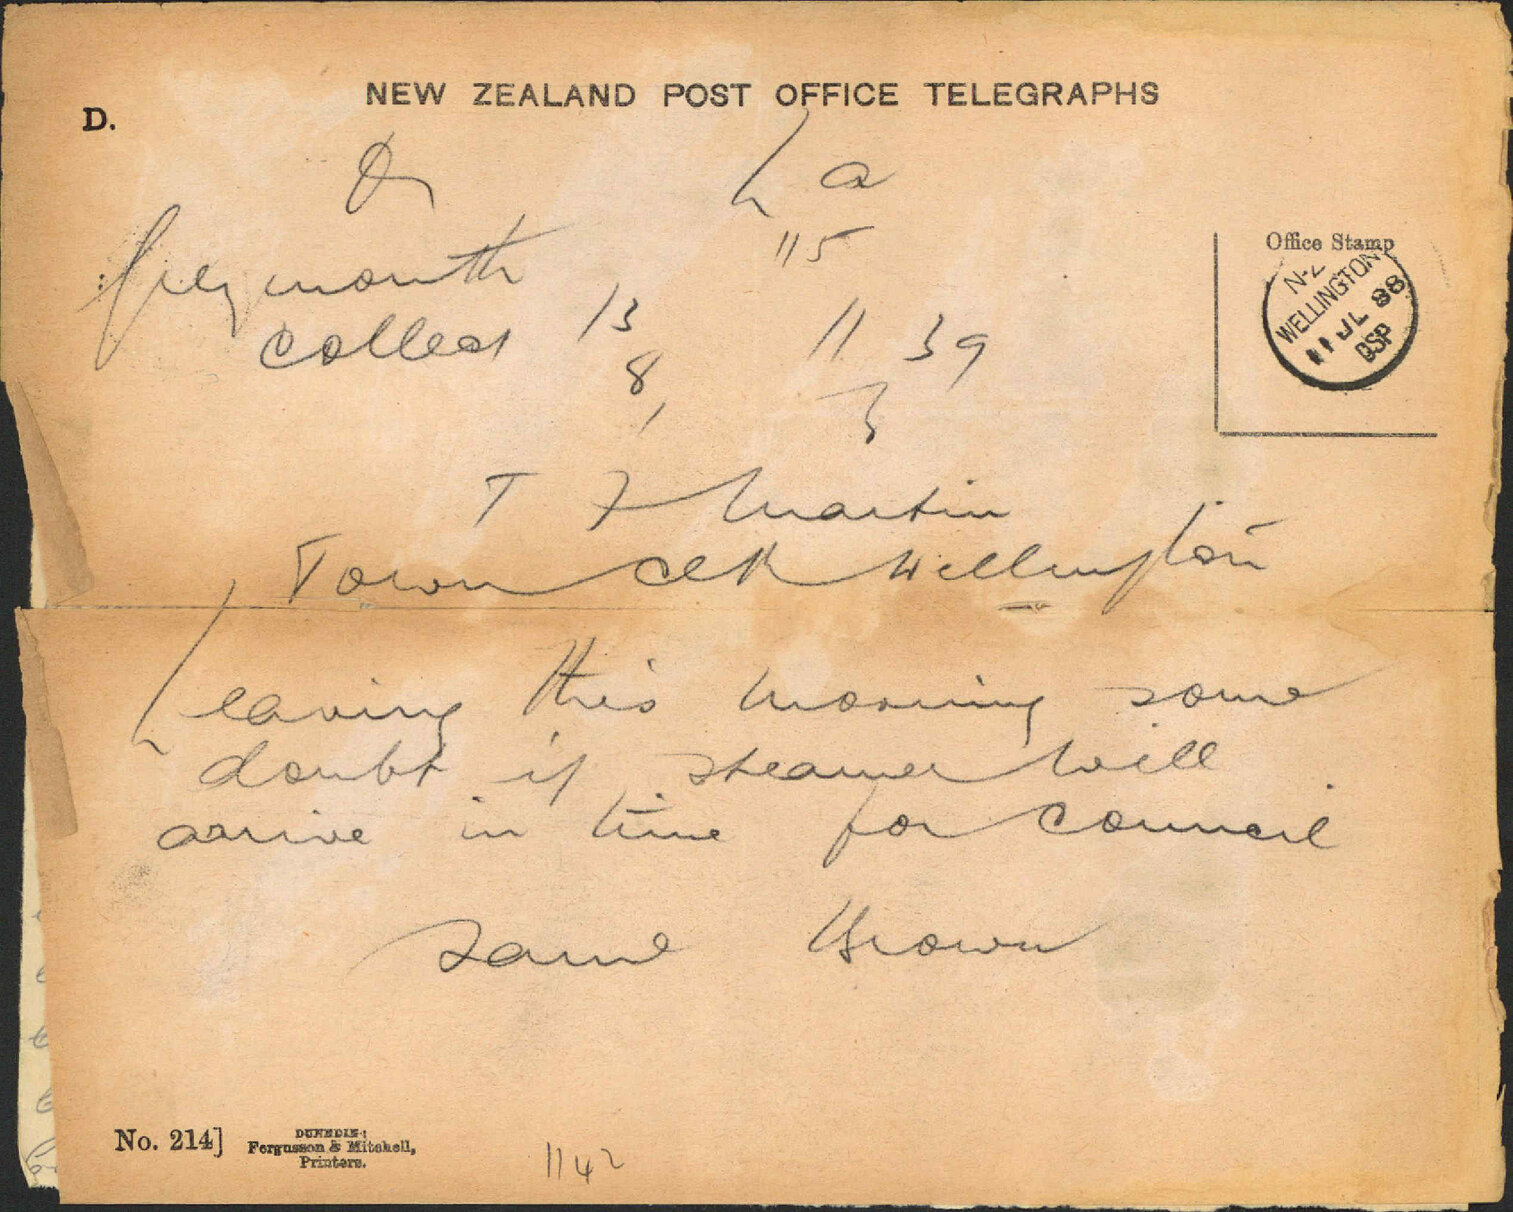 NEW ZEALAND POST OFFICE TELEGRAPHS
D.
115
Office Stamp
N.Z
WELLINGTON
11 JL 88
Greymouth
Collect 13 11 39
8 3
T F Martin
Town Clk Wellington
Leaving this morning some
doubt if steamer will
arrive in time for council
Saml Brown
No. 214]
DUNEDIN:
Fergusson & Mitchell,
Printers.
1142